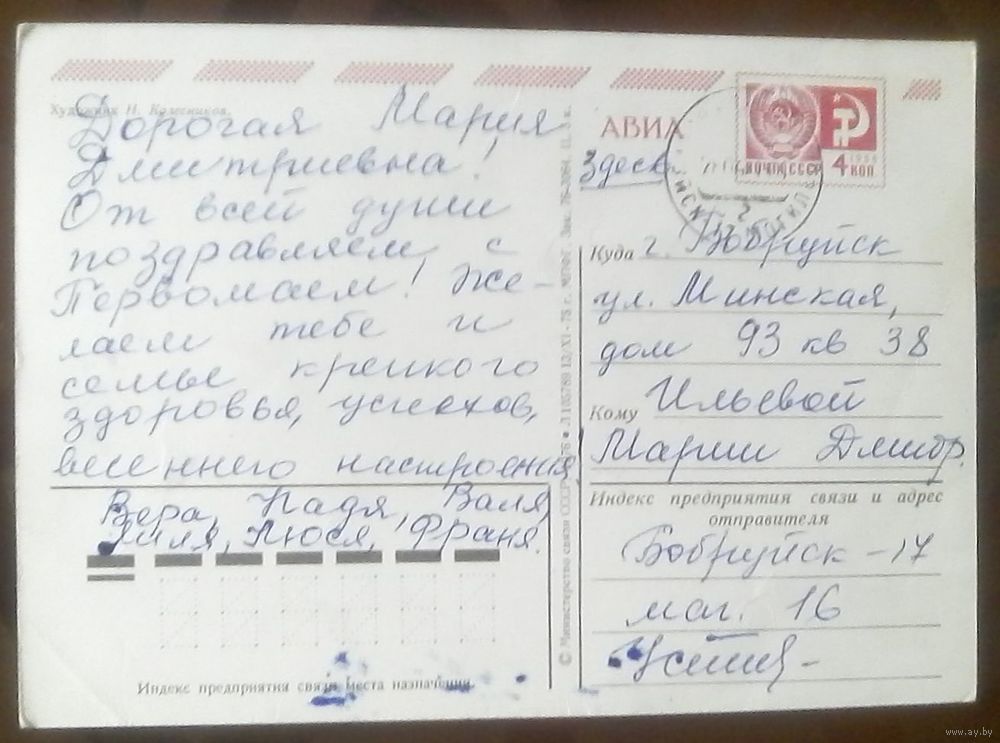 Художник Н. Колесников.
Дорогая Мария
Дмитриевна!
От всей души
поздравляем с
Первомаем! Же-
лаем тебе и
семье крепкого
здоровья, успехов,
весеннего настроения!
Вера, Надя, Валя,
Люся, Франя.
Индекс предприятия связи места назначения
© Министерство связи СССР
АВИА
Здесь
ПОЧТА СССР
1966
4 КОП
Куда г. Бобруйск
ул. Минская,
дом 93 кв 38
Кому Ильевой
Марии Дмитр.
Индекс предприятия связи и адрес
отправителя
Бобруйск - 17
маг. 16
www.ay.by